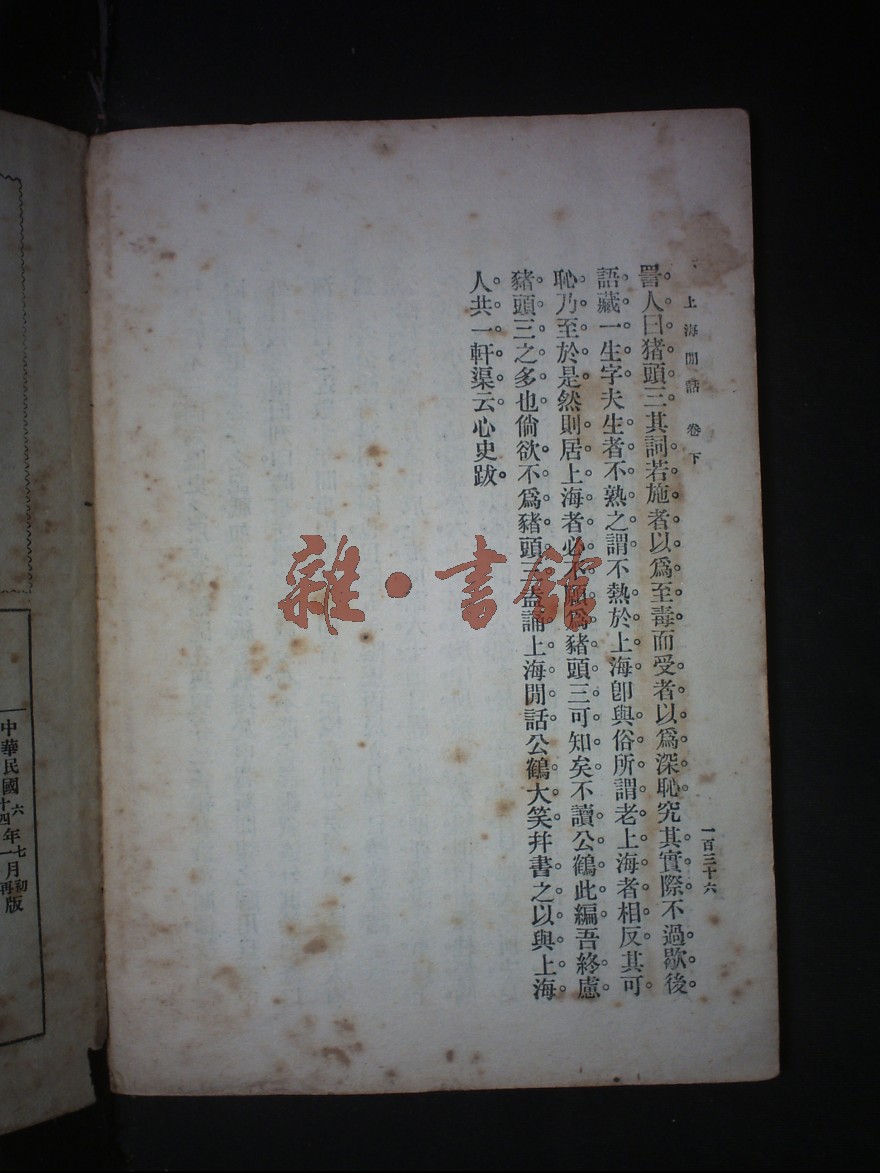 上海閒話 卷下
一百三十六
詈人曰猪頭三其詞若施者以爲至毒而受者以爲深恥究其實際不過歇後
語藏一生字夫生者不熟之謂不熱於上海卽與俗所謂老上海者相反其可
恥乃至於是然則居上海者必不願爲豬頭三可知矣不讀公鶴此編吾終慮
豬頭三之多也倘欲不爲豬頭三盍誦上海閒話公鶴大笑幷書之以與上海
人共一軒渠云心史跋
雜·書館
中華民國
六年七月初版
十四年一月再版